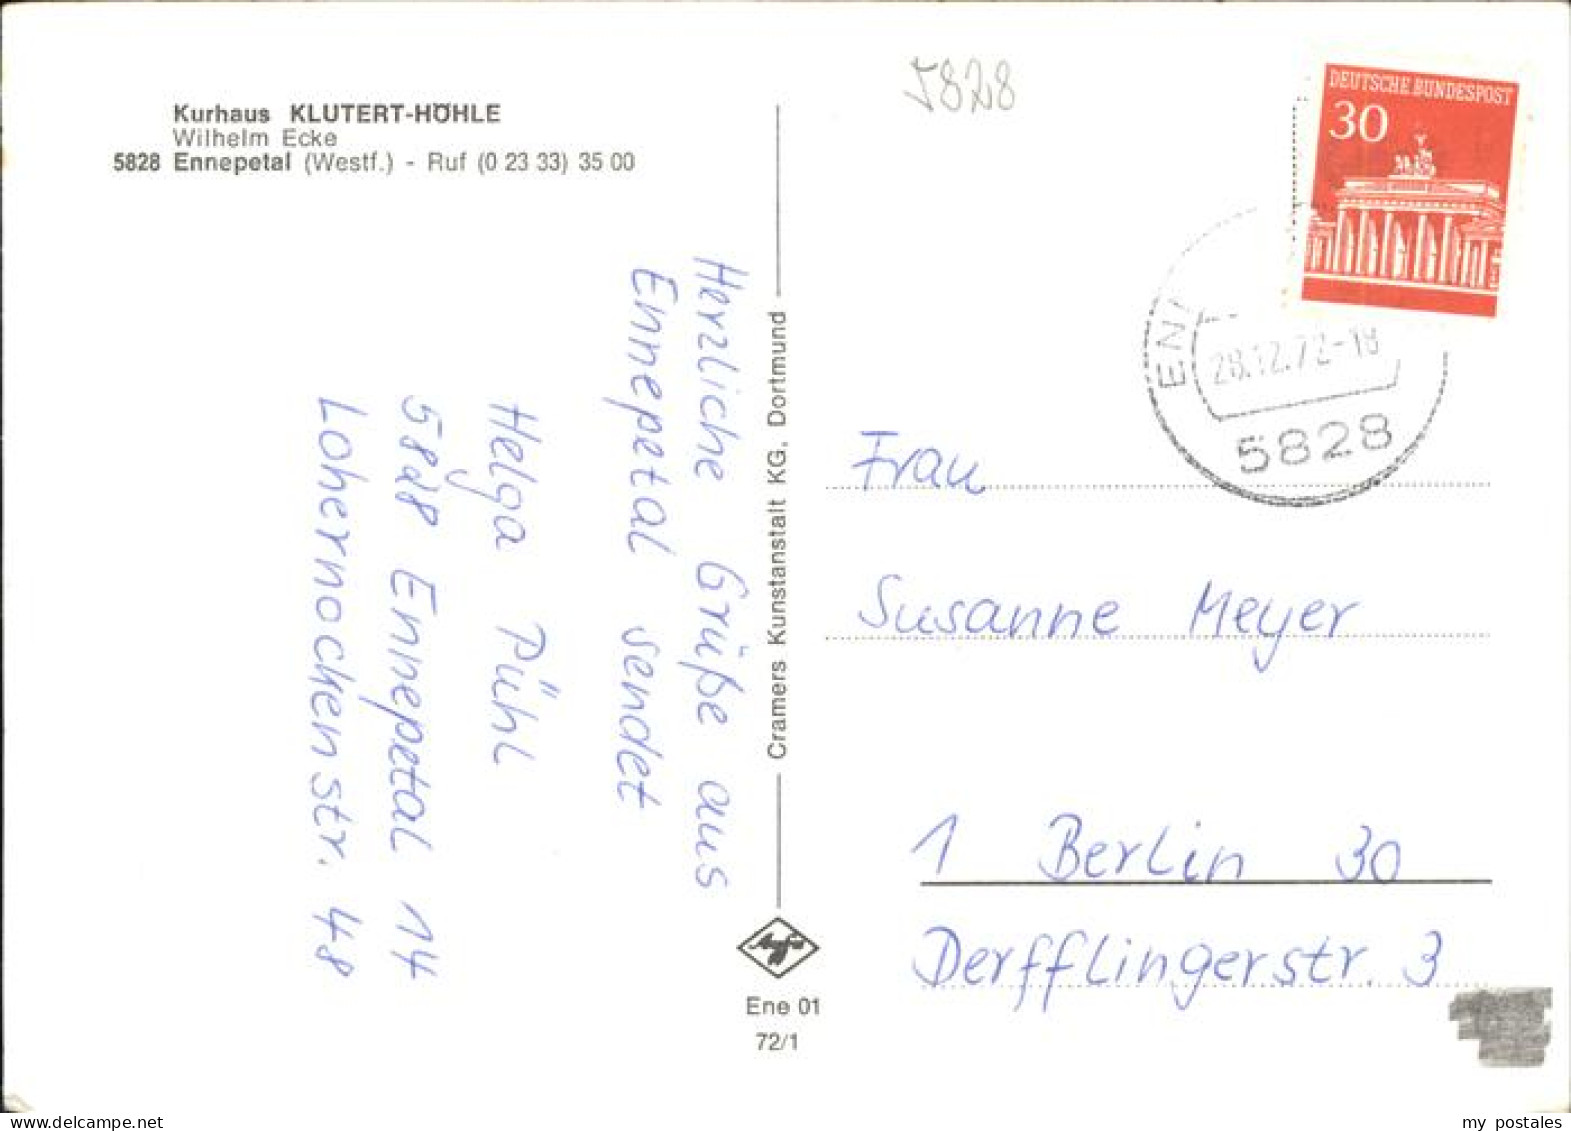 Kurhaus KLUTERT-HÖHLE
Wilhelm Ecke
5828 Ennepetal (Westf.) - Ruf (0 23 33) 35 00
Herzliche Grüße aus
Ennepetal sendet
Helga Pühl
5828 Ennepetal 14
Lohernockenstr. 48
Cramers Kunstanstalt KG, Dortmund
Agfa
Ene 01
72/1
5828
DEUTSCHE BUNDESPOST
30
28.12.72-18
5828
Frau
Susanne Meyer
1 Berlin 30
Derfflingerstr. 3
my postales